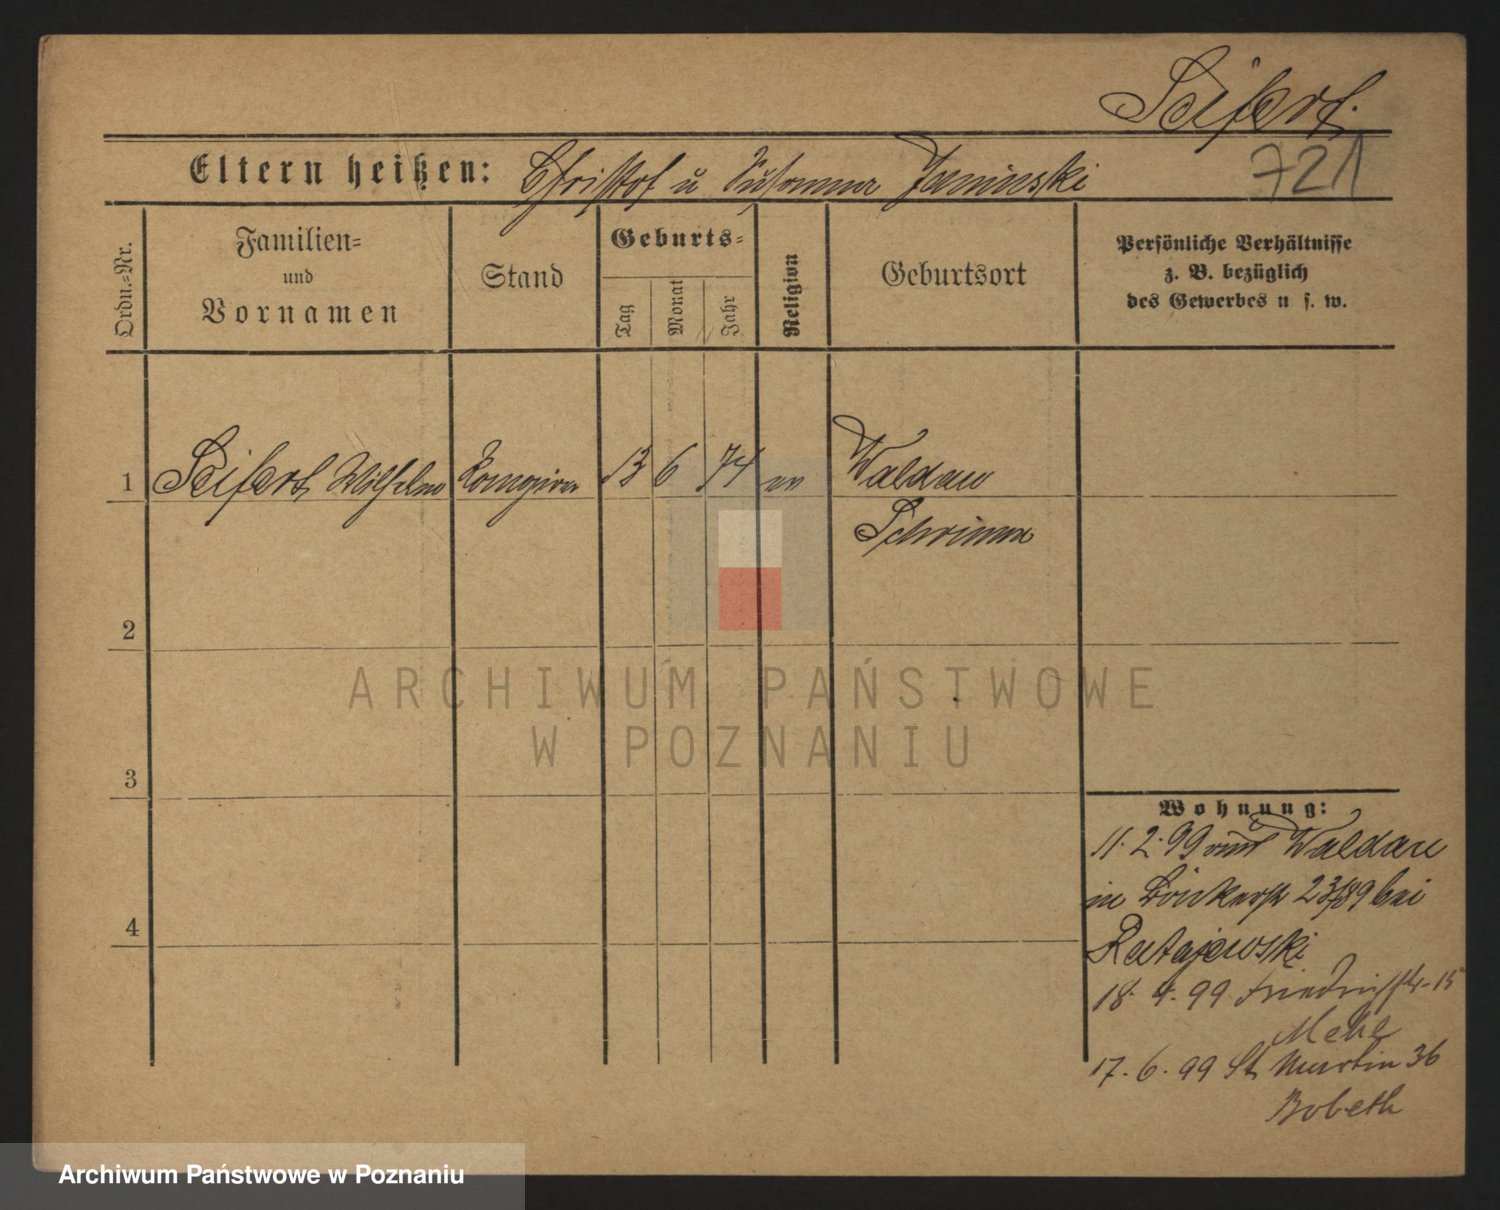 Seifert.
721
Eltern heißen: Christof u Susanna Janinski
Ordn.=Nr.
Familien=
und
Vornamen
Stand
Geburts=
Tag
Monat
Jahr
Religion
Geburtsort
Persönliche Verhältnisse
z. B. bezüglich
des Gewerbes u s. w.
1 Seifert Wilhelm 13 6 74 ev Waldau
Schrimm
2
3
4
Wohnung:
11. 2. 99 Waldau
in 23/89 bei
Ratajewski
18. 4. 99 Friedrichstr. 15
Mehl
17. 6. 99 St Martin 36
Bobeth
ARCHIWUM PAŃSTWOWE
W POZNANIU
Archiwum Państwowe w Poznaniu